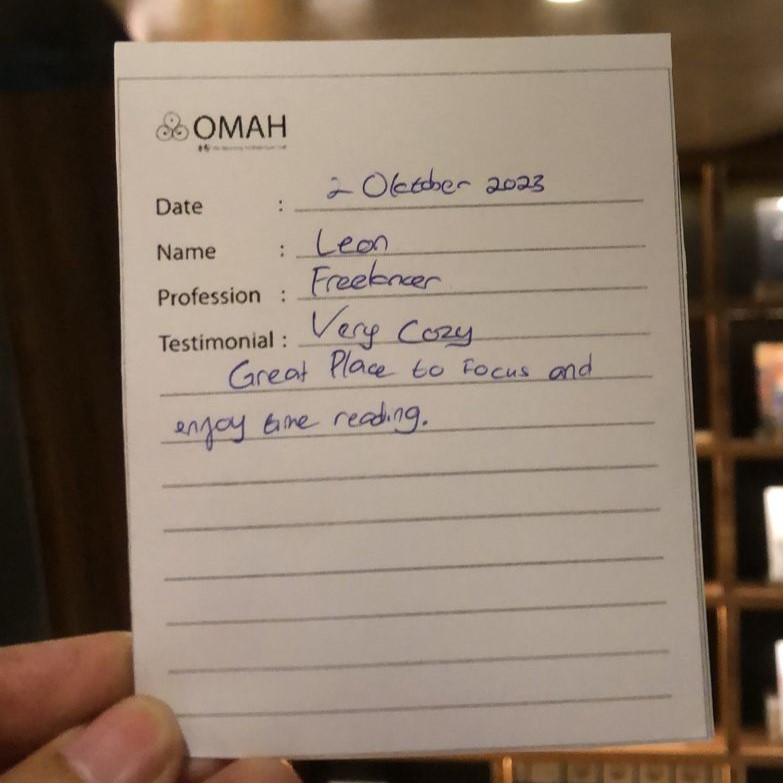 OMAH
Date : 2 Oktober 2023
Name : Leon
Profession : Freelancer
Testimonial : Very Cozy
Great Place to Focus and
enjoy time reading.